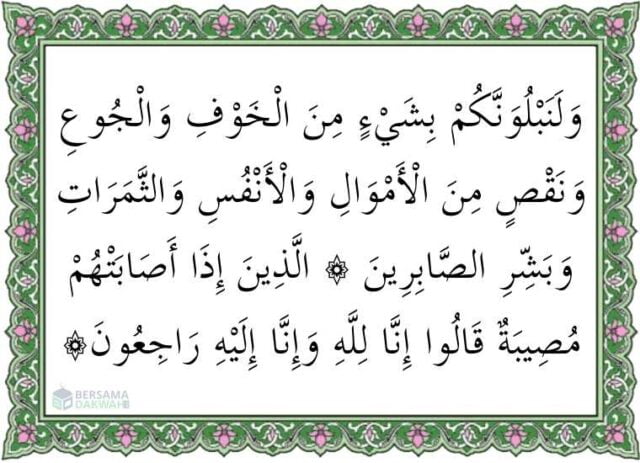 وَلَنَبْلُوَنَّكُمْ بِشَيْءٍ مِنَ الْخَوْفِ وَالْجُوعِ
وَنَقْصٍ مِنَ الْأَمْوَالِ وَالْأَنْفُسِ وَالثَّمَرَاتِ
وَبَشِّرِ الصَّابِرِينَ ۞ الَّذِينَ إِذَا أَصَابَتْهُمْ
مُصِيبَةٌ قَالُوا إِنَّا لِلَّهِ وَإِنَّا إِلَيْهِ رَاجِعُونَ ۞
BERSAMA
DAKWAH